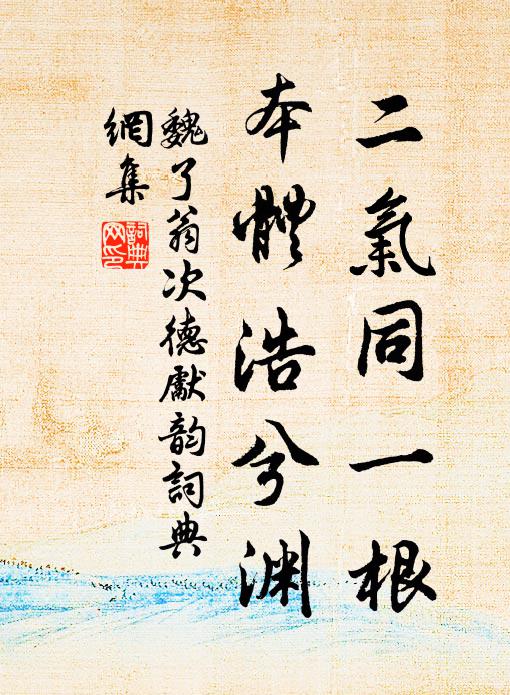 二氣同一根
本體浩兮渊
魏了翁次德獻韵詞典
網集
詞典网印